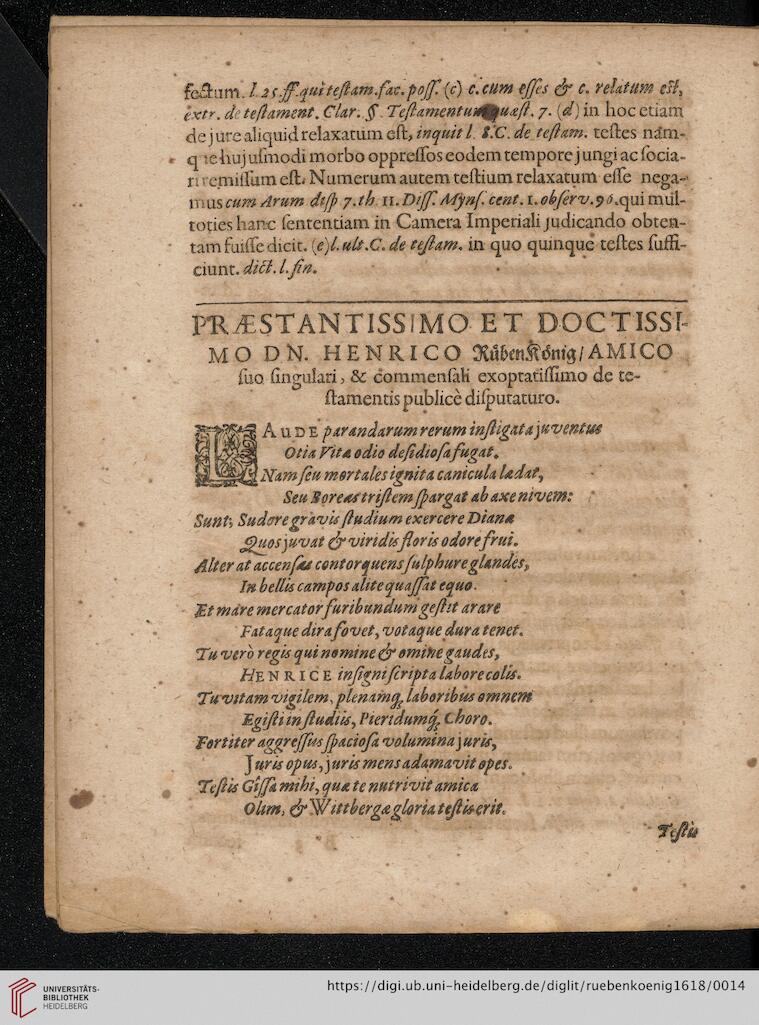 fectum. l. 25. ff. qui testam. fac. poss. (c) c. cum esses & c. relatum est,
extr. de testament. Clar. §. Testamentum quæst. 7. (d) in hoc etiam
de jure aliquid relaxatum est, inquit l. 8. C. de testam. testes nam-
que hujusmodi morbo oppressos eodem tempore jungi ac socia-
ri remissum est. Numerum autem testium relaxatum esse nega-
mus cum Arum disp 7. th. 11. Diss. Myns. cent. 1. observ. 96. qui mul-
toties hanc sententiam in Camera Imperiali judicando obten-
tam fuisse dicit. (e) l. ult. C. de testam. in quo quinque testes suffi-
ciunt. dict. l. fin.
PRÆSTANTISSIMO ET DOCTISSI-
MO DN. HENRICO RübenKönig / AMICO
suo singulari, & commensali exoptatissimo de te-
stamentis publicè disputaturo.
LAUDE parandarum rerum instigata juventus
Otia Vitæ odio desidiosa fugat.
Nam seu mortales ignita canicula lædat,
Seu Boreas tristem spargat ab axe nivem:
Sunt; Sudore gravis studium exercere Dianæ
Quos juvat & viridis floris odore frui.
Alter at accensas contorquens sulphure glandes,
In bellis campos alite quassat equo.
Et mare mercator furibundum gestit arare
Fataque dira fovet, votaque dura tenet.
Tu verò regis qui nomine & omine gaudes,
HENRICE insigni scripta labore colis.
Tu vitam vigilem, plenamq́; laboribus omnem
Egisti in studiis, Pieridumq́; Choro.
Fortiter aggressus spaciosa volumina juris,
Juris opus, juris mens adamavit opes.
Testis Gissa mihi, quæ te nutrivit amica
Olim, & Wittbergæ gloria testis erit.
Testis
UNIVERSITÄTS-
BIBLIOTHEK
HEIDELBERG
https://digi.ub.uni-heidelberg.de/diglit/ruebenkoenig1618/0014